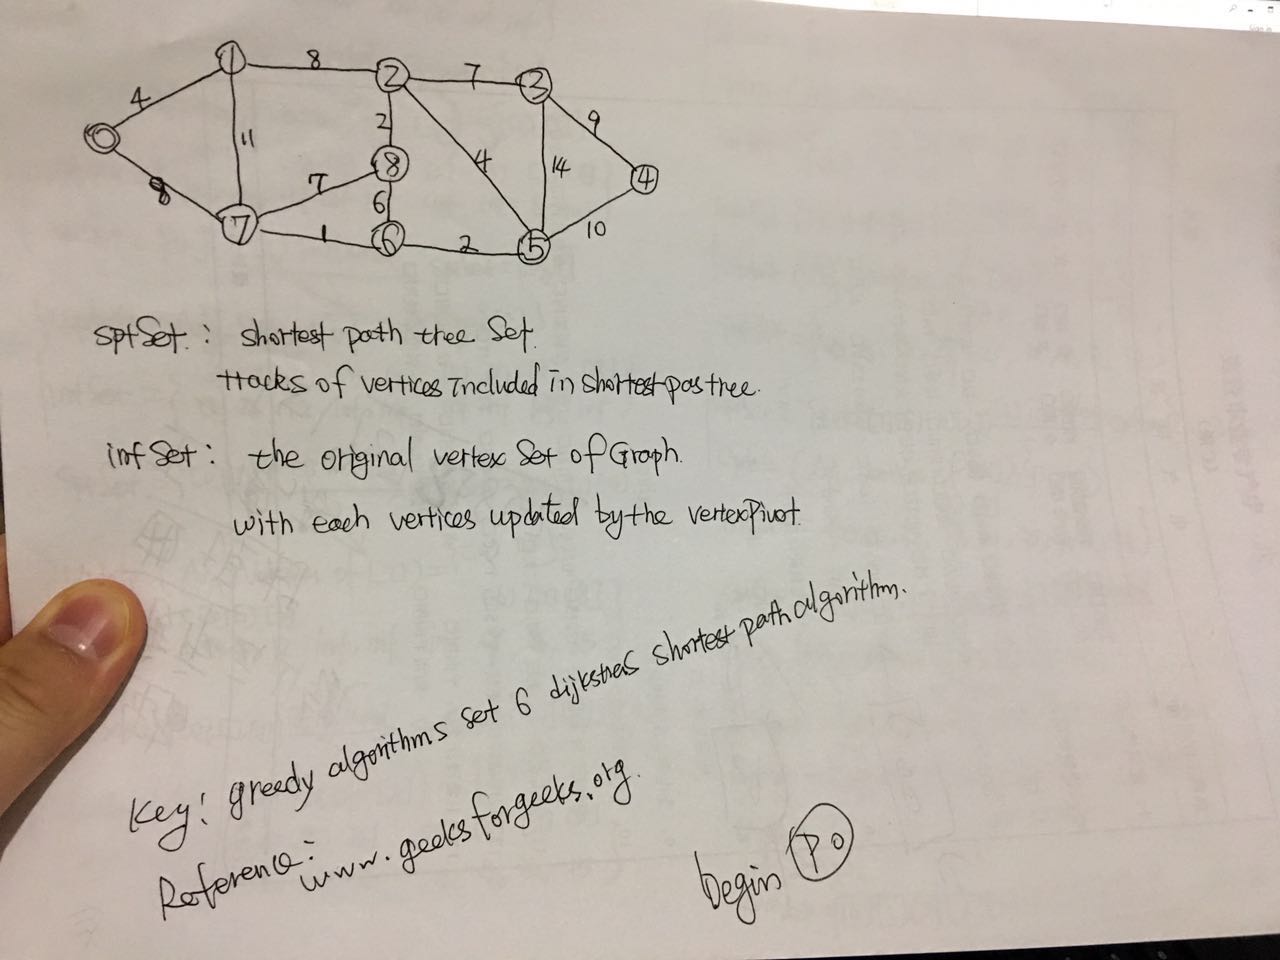 1 8 2 7 3
4 9
0 11 2 4 14 4
8 7 8 10
7 1 6 6 2 5
sptSet: shortest path tree Set.
tracks of vertices Included in shortestpastree.
infSet: the original vertex Set of Graph.
with each vertices updated by the vertexPivot.
Key: greedy algorithms set 6 dijkstras shortest path algorithm.
Reference: www.geeksforgeeks.org.
begin P0